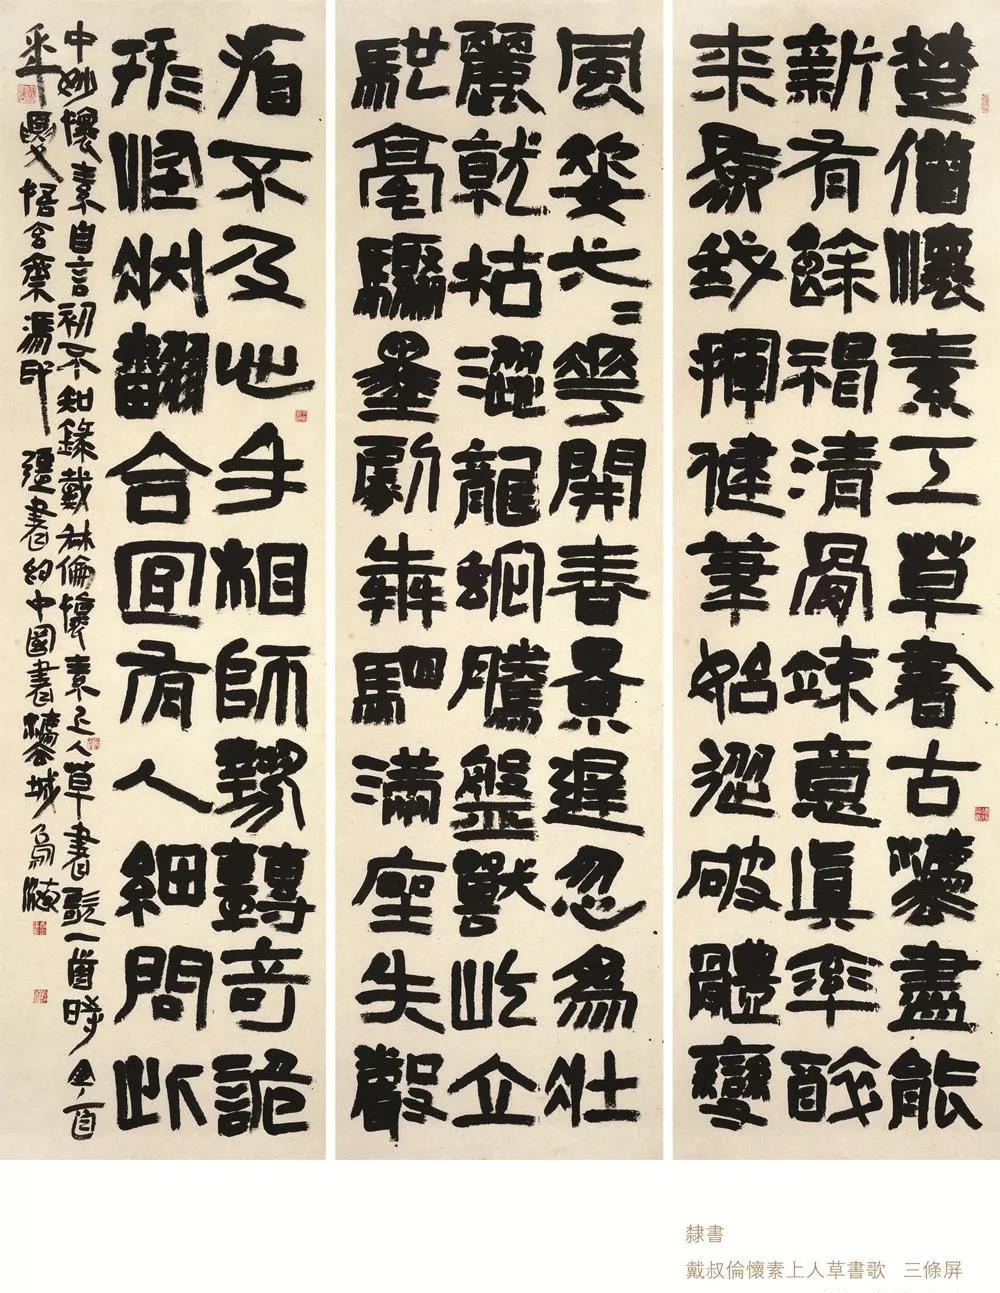 楚僧懷素工草書古灋盡能
新有餘神清骨竦意眞率醉
来為我揮健筆始從破體變
風姿弌〻華開春景遲忽為壯
麗就枯澀龍蛇騰盤獸屹立
馳毫驟墨劇犇駟滿座失聲
看不及心手相師勢轉奇詭
形怪狀翻合宜有人細問此
中妙懷素自言初不知錄戴叔倫懷素上人草書歌一首時
悟含齋馮印彊書於中國書灋城烏海
隸書
戴叔倫懷素上人草書歌 三條屏